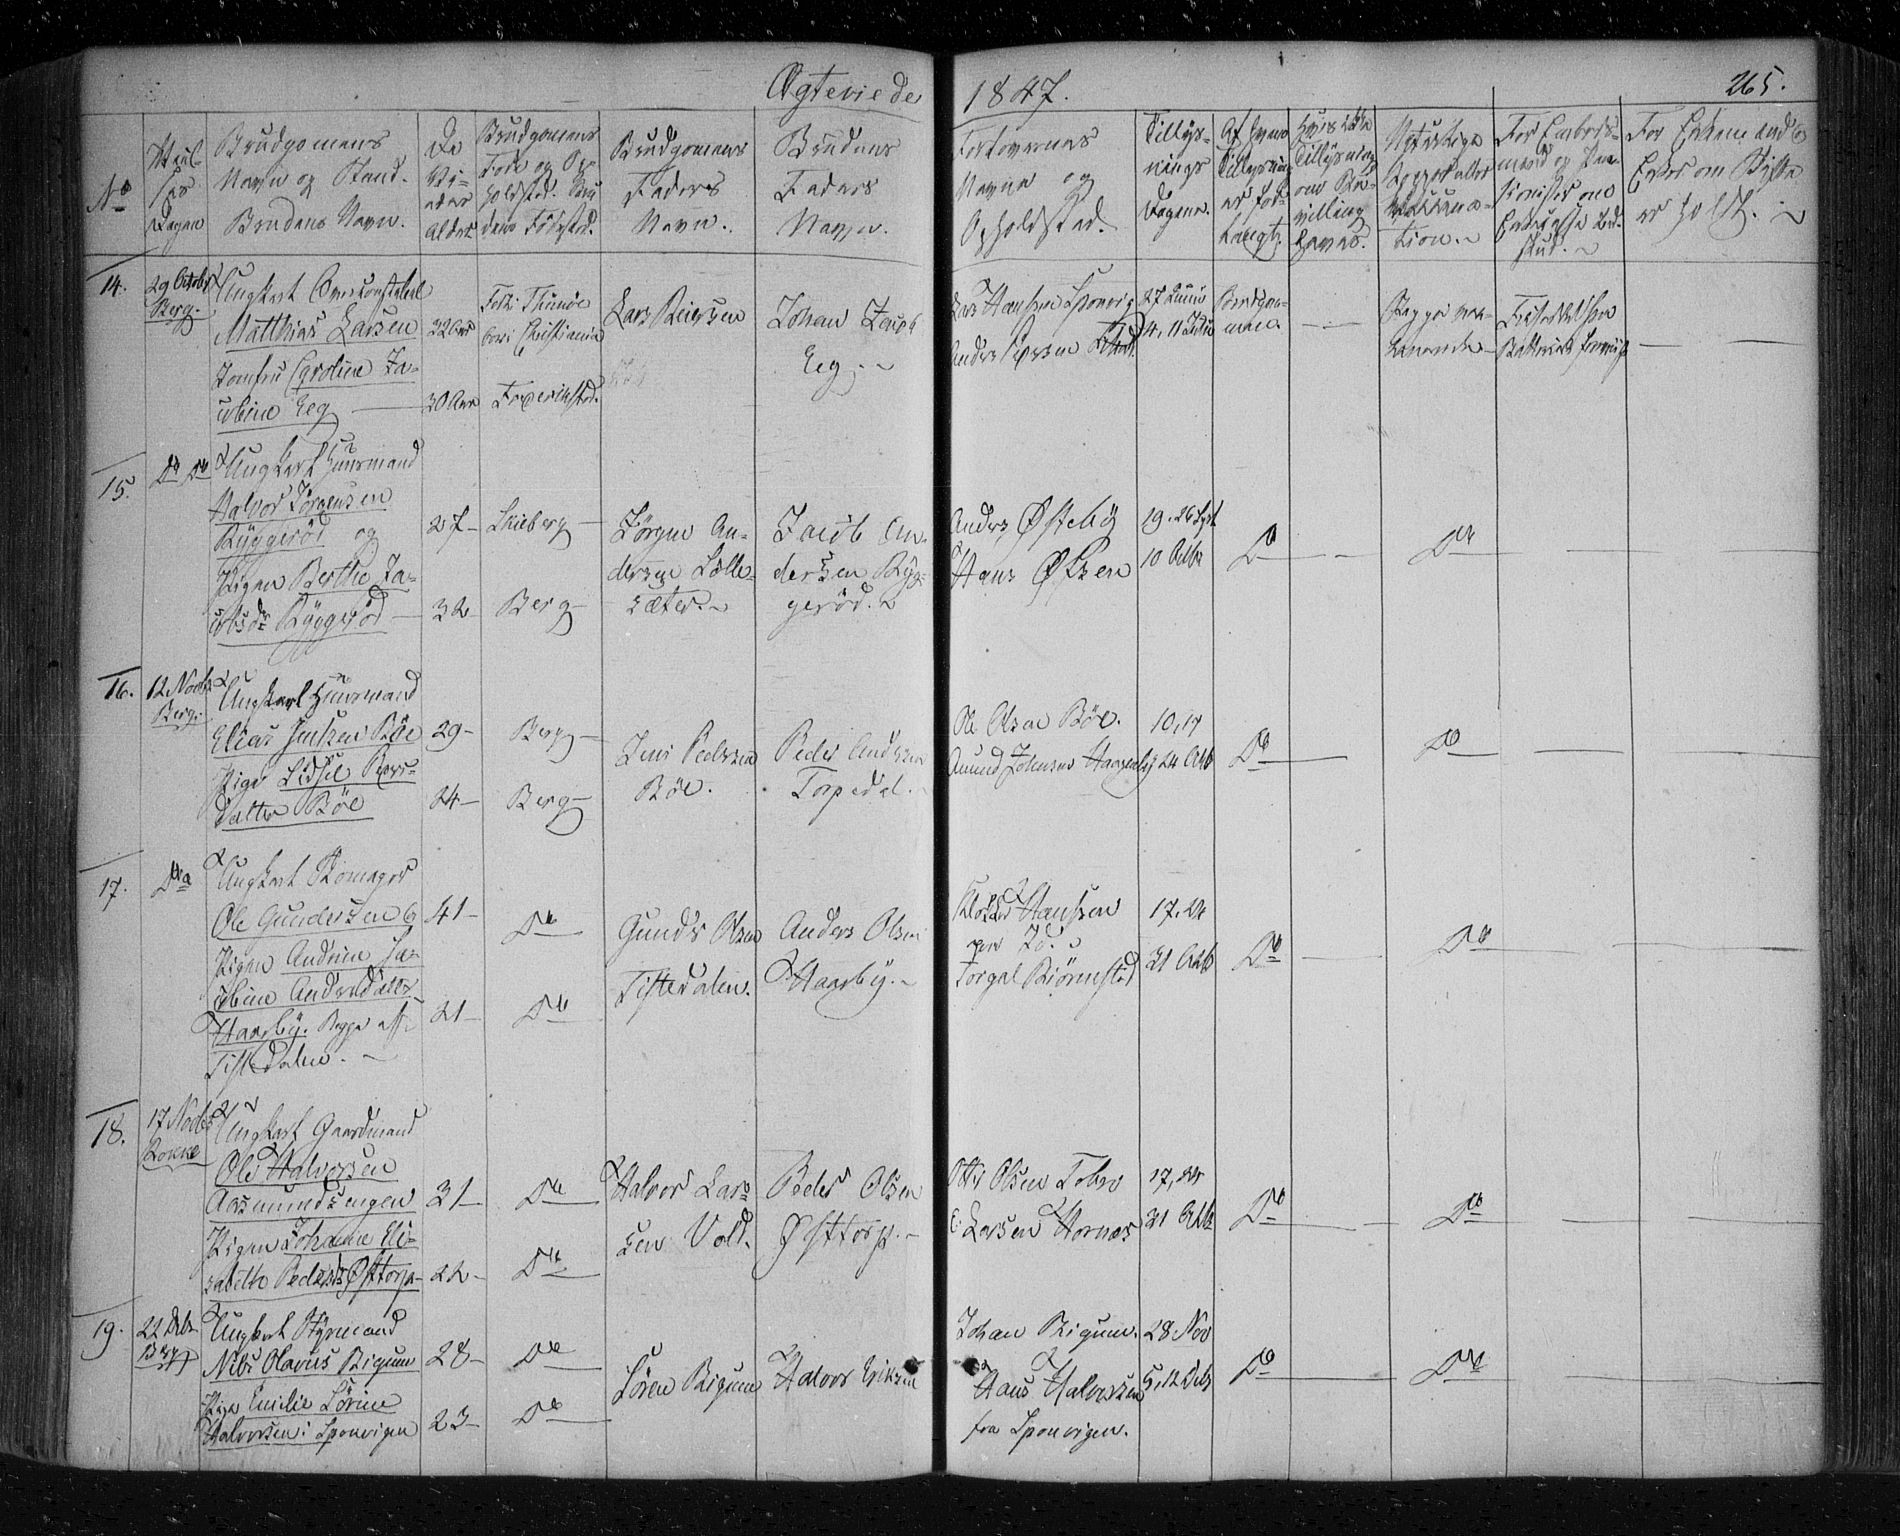 Ægteviede 1847. 265.
No
Dagen
Brudgomens
Navn og Stand.
Brudens Navn.
De
Alder
Brudgomens
Føde og Op-
holdsted. Bru-
dens Fødested.
Brudgomens
Faders
Navn.
Brudens
Faders
Navn.
Forlovernes
Navne og
Opholdsted.
Tillys-
nings
Dagene.
Af hvem
Tillysning
er for-
langt.
Hvis ikke
Tillysning
om Be-
villing
haves.
Naturlige
Kopper eller
Vaccina-
tion.
For Enkemænd
Enker om Skifte
er holdt.
14.
29 October
Berg.
Ungkarl Overconstabel
Matthias Larsen
Jomfru Caroline Ja-
cobine Eeg
32 Aar
30 Aar
Christiania
Frederikstad.
Lars Reiersen
Johan Jacob
Eeg.
Lars Hansen Sponvig
Anders
27 Juni
4, 11 Juli
Brudgom-
men
Begge vac-
cinerede
15.
Do Do
Ungkarl Huusmand
Halvor Jørgensen
Ryggerød og
Pigen Berthe Ja-
cobsdr Ryggerød
27
32
Skieberg
Berg
Jørgen An-
dersen Lille-
sæter.
Jacob An-
dersen Ryg-
gerød.
Anders Østeby
Hans Olsen
19. 26 Sept
10 Octbr
Do
Do
16.
12 Novbr
Berg.
Ungkarl Huusmand
Elias Jensen Böe
Pige Lidsel Peders-
datter Böe
29
24
Berg
Berg
Jens Pedersen
Böe.
Peder Andersen
Torpedal.
Ole Olsen Böe.
Amund Johnsen
10, 17
24 Octb
Do
Do
17.
Dito
Ungkarl Skomager
Ole Gundersen og
Pigen Andrine Ja-
cobine Andersdatter
Haarby. Begge af
Tistedalen.
41
21
Do
Do
Gunder Olsen
Tistedalen.
Anders Olsen
Haarby.
Klokker Hansen
paa Id.
Torgal Biørnstad
17. 24
31 Octb
Do
Do
18.
17 Novbr
Rokke
Ungkarl Gaardmand
Ole Halvorsen
Aasmundsengen
Pigen Johanne Eli-
sabeth Pedersdr Østtorp
31
22
Do
Do
Halvor Lar-
sen Vold.
Peder Olsen
Østtorp.
Otto Olsen
Larsen Hornæs
17, 24
31 Octb
Do
Do
19.
22 Decbr
Berg
Ungkarl Styrmand
Nils Olavus Bigum
Pige Emilie Sörine
Halvorsen i Sponvigen
28
23
Do
Do
Sören Bigum
Halvor Eriksen
Johan Bigum.
Hans Halvorsen
fra Sponvigen.
28 Nov
5, 12 Decbr
Do
Do